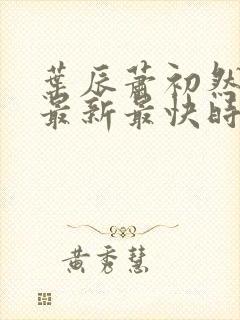 葉辰蕭初然
最新最快時
黃秀慧